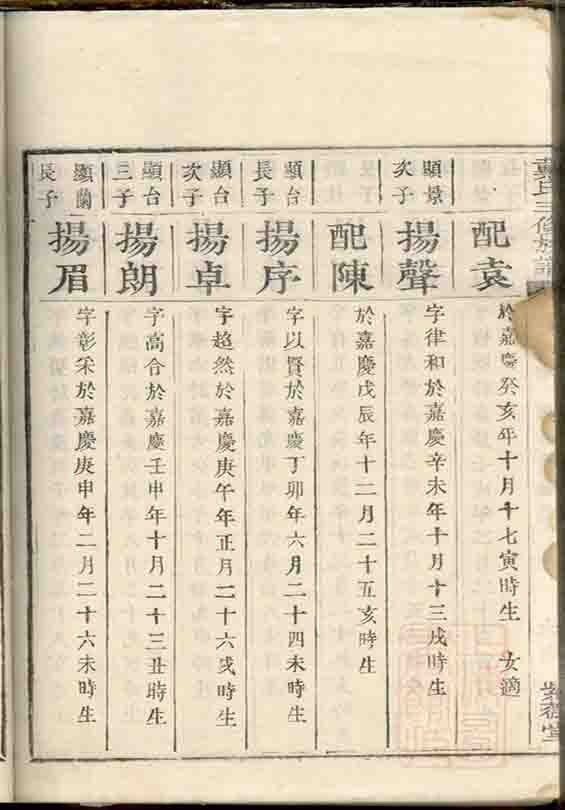 氏三修族譜
配袁
於嘉慶癸亥年十月十七寅時生 女適
顯景
次子
揚聲
字律和於嘉慶辛未年十月十三戌時生
配陳
於嘉慶戊辰年十二月二十五亥時生
顯台
長子
揚序
字以賢於嘉慶丁卯年六月二十四未時生
顯台
次子
揚卓
字超然於嘉慶庚午年正月二十六戌時生
顯台
三子
揚朗
字高合於嘉慶壬申年十月二十三丑時生
顯蘭
長子
揚眉
字彰采於嘉慶庚申年二月二十六未時生